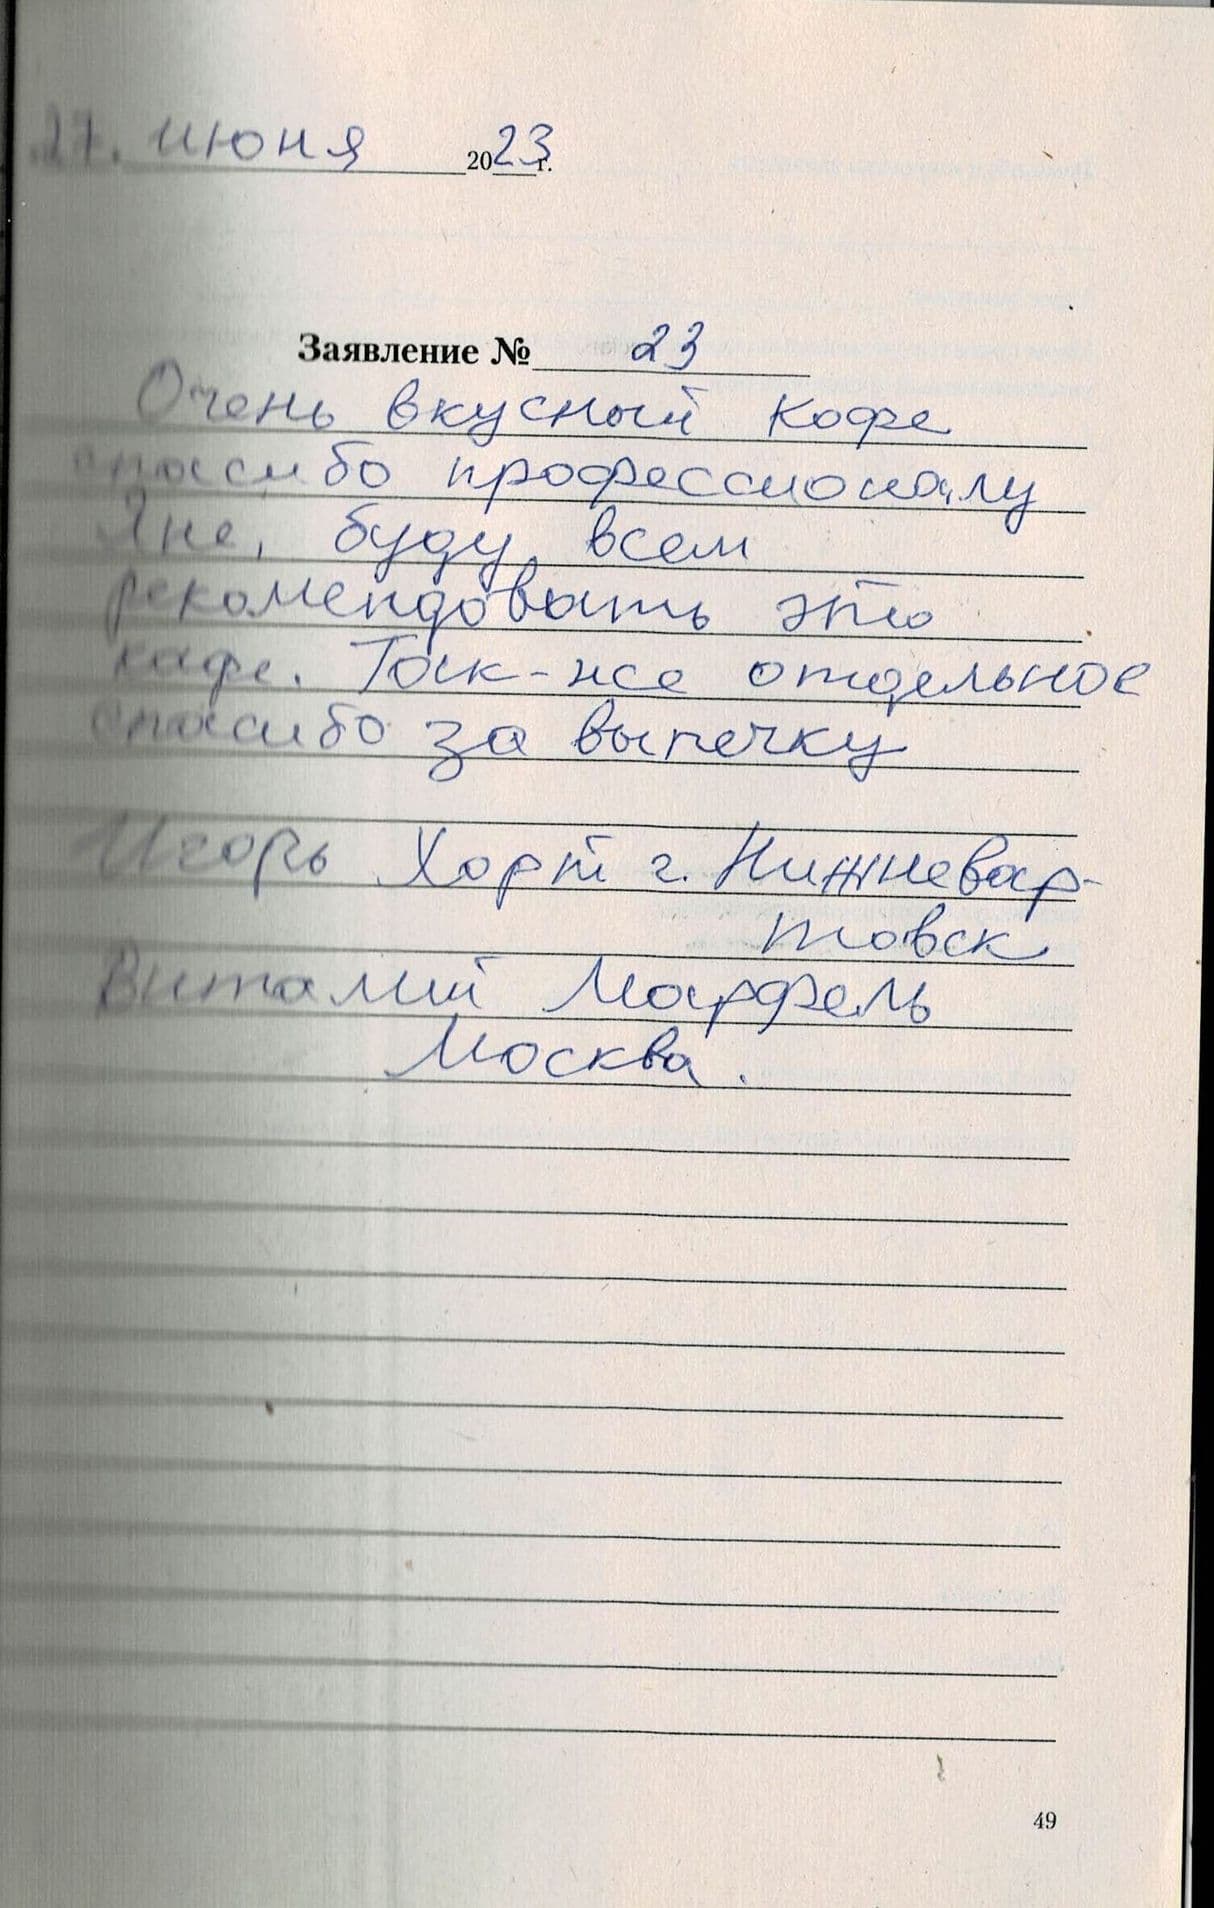 27. июня 2023 г.
Заявление № 23
Очень вкусный кофе
спасибо профессионалу
Яне, буду всем
рекомендовать это
кафе. Так-же отдельное
спасибо за выпечку
Игорь Хорт г. Нижневар-
товск
Виталий Марфель
Москва.
49